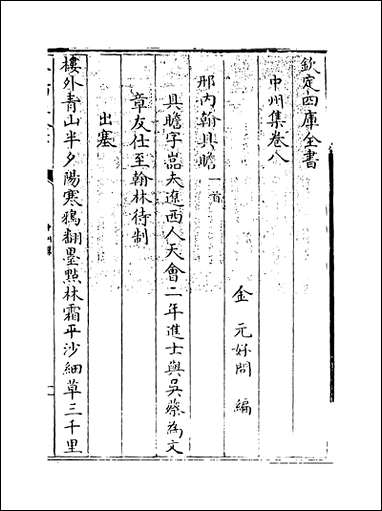 欽定四庫全書
中州集卷八
金 元好問 編
邢內翰具瞻一首
具瞻字嵓夫遼西人天會二年進士與吳蔡為文
章友仕至翰林待制
出塞
樓外青山半夕陽寒鴉翻墨㸃林霜平沙細草三千里